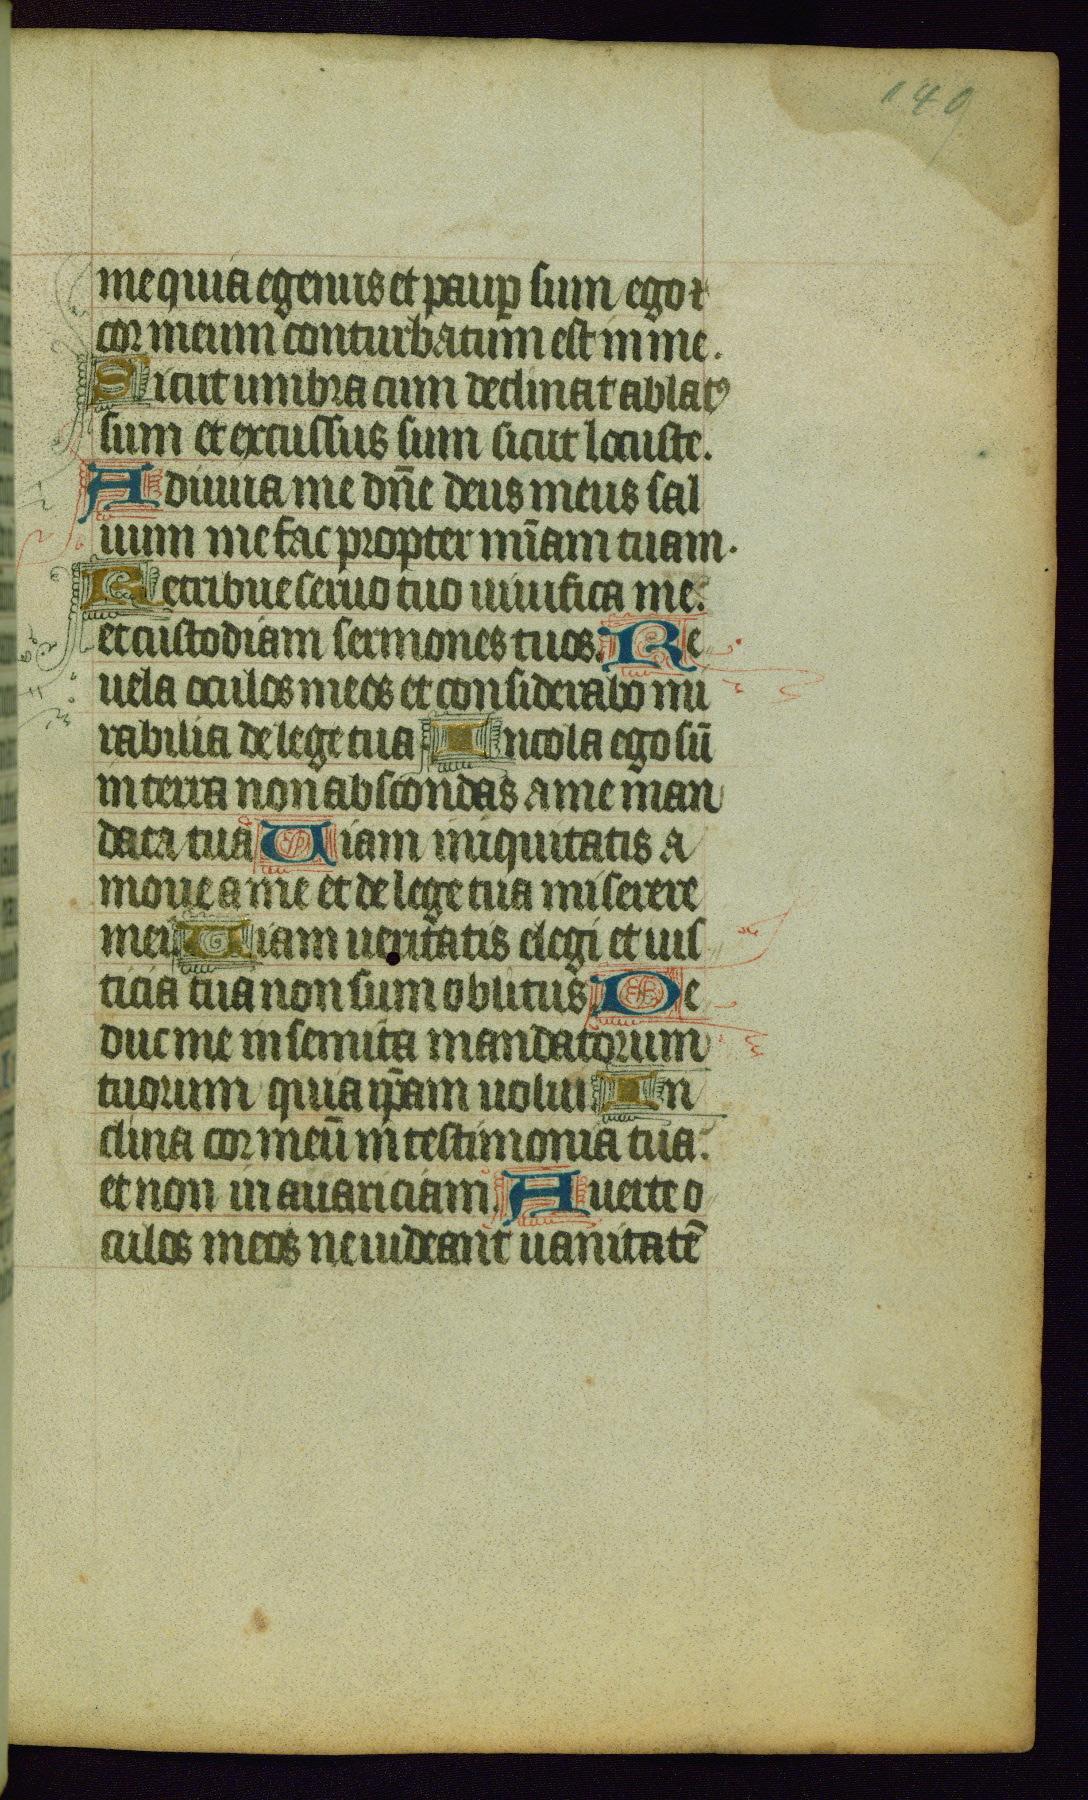 149
me quia egenus et paup sum ego ⁊
cor meum conturbatum est in me.
Sicut umbra cum declinat ablatꝰ
sum et excussus sum sicut locuste.
Adiuua me dn̄e deus meus sal
uum me fac propter mīam tuam.
Retribue seruo tuo uiuifica me.
et custodiam sermones tuos. Re
uela oculos meos et considerabo mi
rabilia de lege tua Incola ego sū
in terra non abscondas a me man
data tua Uiam iniquitatis a
moue a me et de lege tua miserere
mei Uiam ueritatis elegi et ius
ticia tua non sum oblitus De
duc me in semita mandatorum
tuorum quia ip̄am uolui In
clina cor meū in testimonia tua.
et non in auariciam. Auerte o
culos meos ne uideant uanitatē